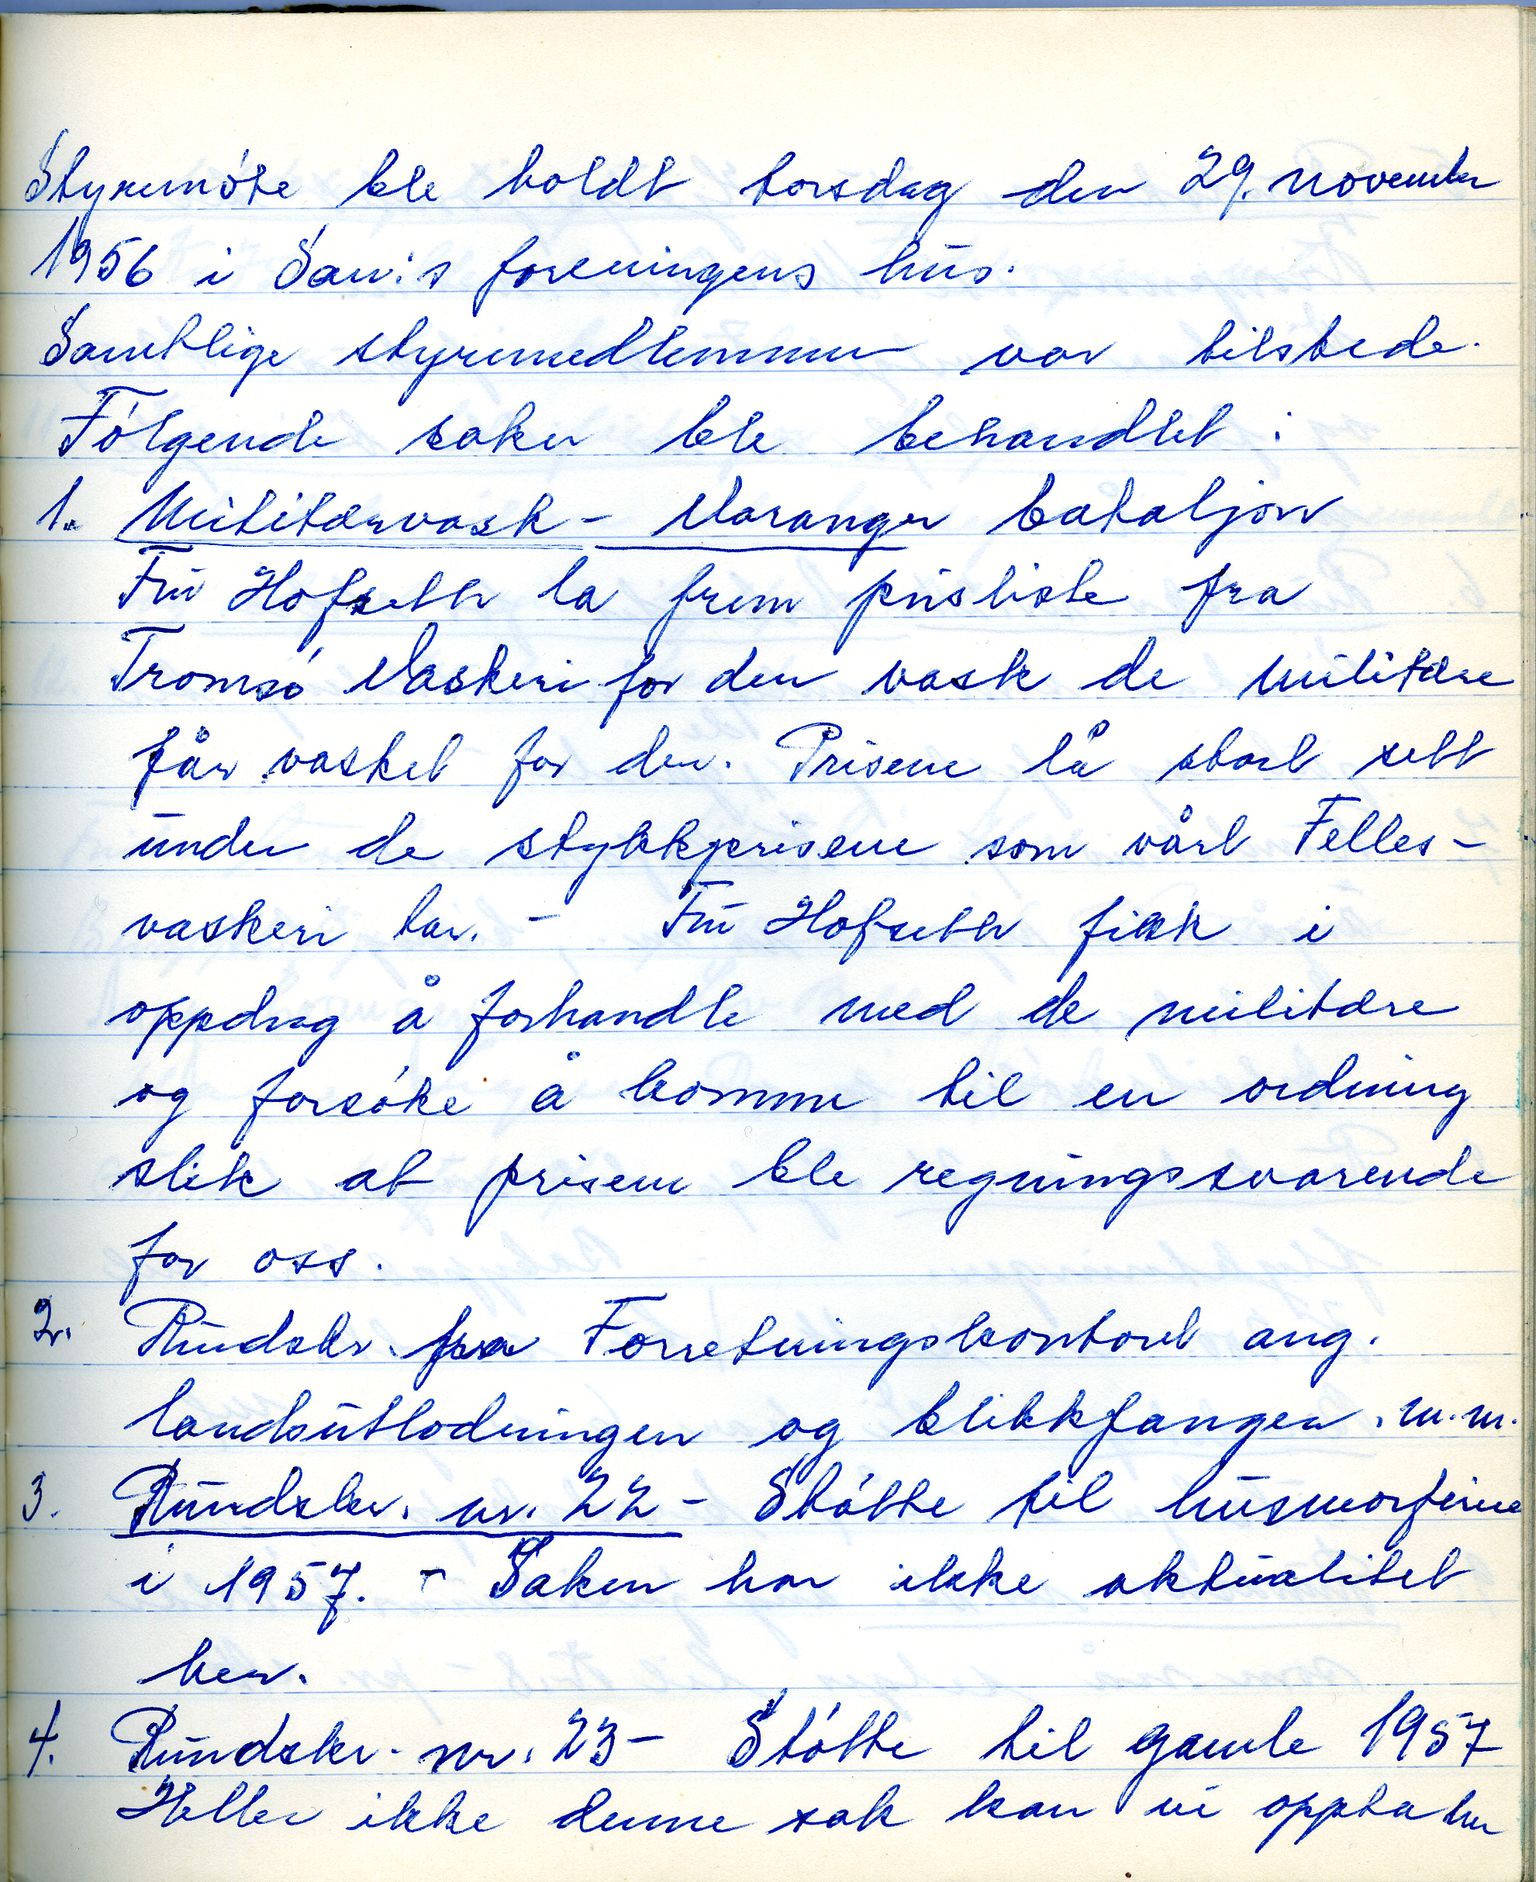 Styremöte ble holdt torsdag den 29. november
1956 i San:s foreningens hus.
Samtlige styremedlemmer var tilstede.
Fölgende saker ble behandlet:
1. Militærvask - Varanger bataljon
Fru Hofseth la frem prisliste fra
Tromsö Vaskeri for den vask de militære
får vasket for der. Prisene lå stort sett
under de stykkprisene som vårt Felles-
vaskeri tar. - Fru Hofseth fikk i
oppdrag å forhandle med de militære
og forsöke å komme til en ordning
slik at prisene ble regningssvarende
for oss.
2. Rundskr. fra Forretningskontoret ang.
landsutlodningen og blikkfangen. m.m.
3. Rundskr. nr. 22 - Stötte til husmorferie
i 1957. - Saken har ikke aktualitet
her.
4. Rundskr. nr. 23 - Stötte til gamle 1957
Heller ikke denne sak kan vi oppta her